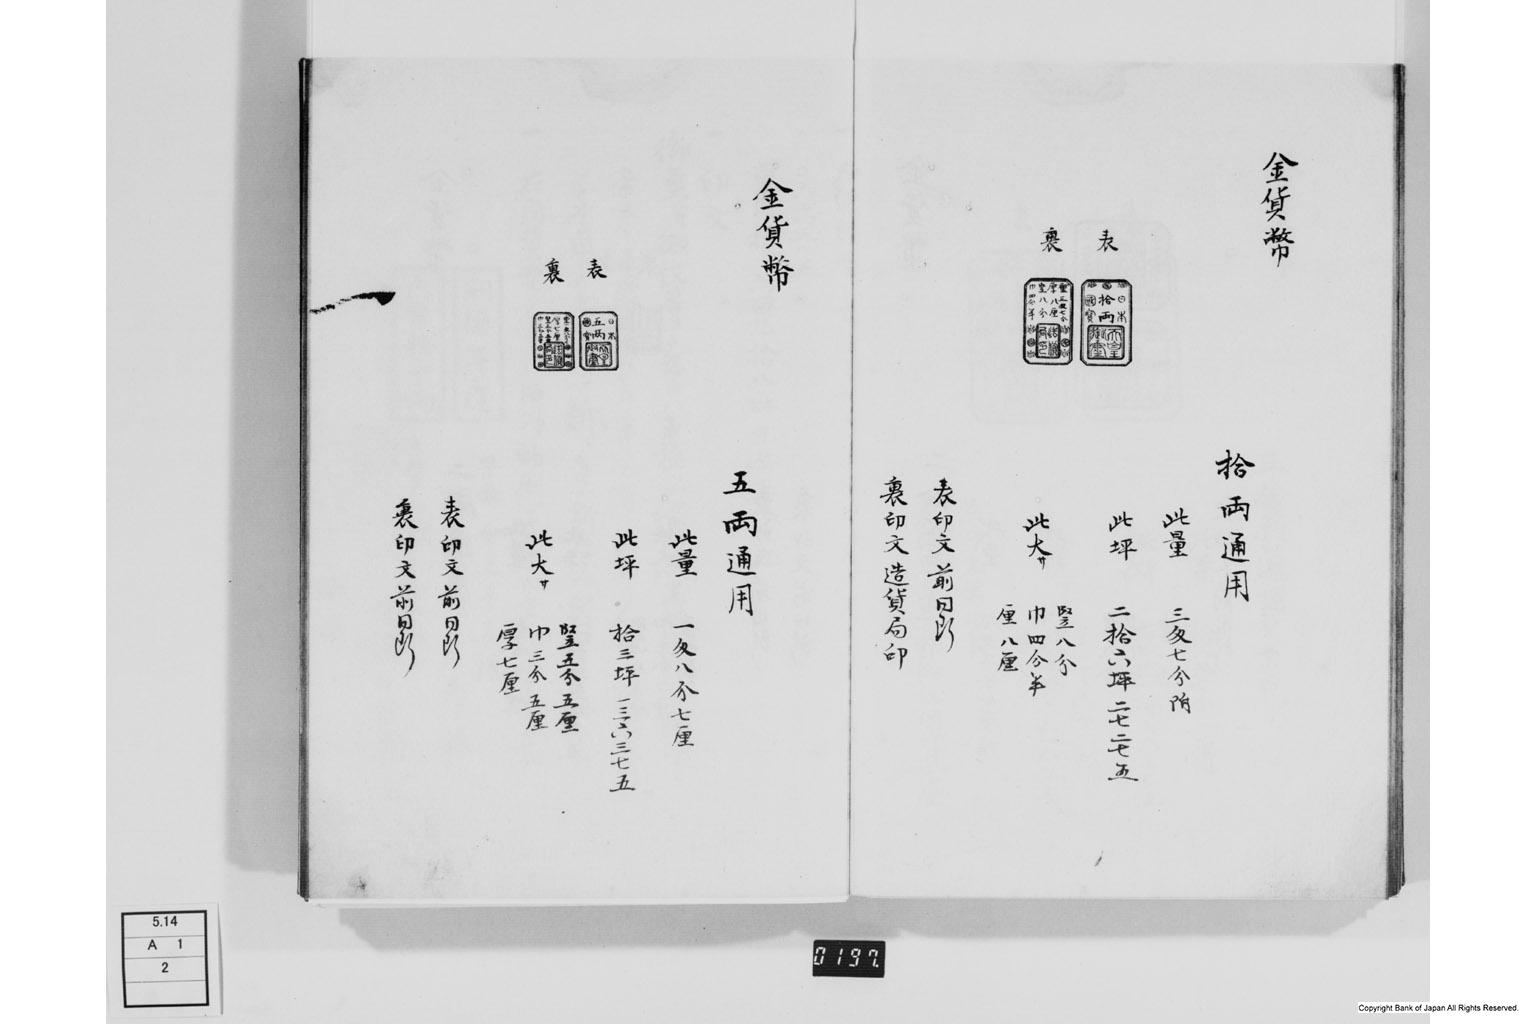 金貨幣
表
裏
日本
拾両
國寳
拾両通用
此量 三匁七分
此坪 二拾六坪二七二七五
此大サ 竪八分
巾四分半
厘八厘
表印文前同断
裏印文造貨局印
金貨幣
表
裏
日本
五両
五両通用
此量 一匁八分七厘
此坪 拾三坪一三六三七五
此大サ 竪五分五厘
巾三分五厘
厚七厘
表印文前同断
裏印文前同断
5.14
A 1
2
0197.
Copyright Bank of Japan All Rights Reserved.